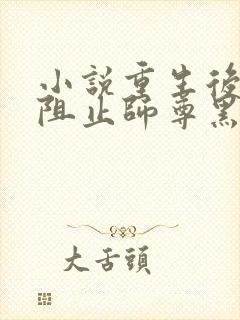 小說重生後
阻止師尊黑
大舌頭